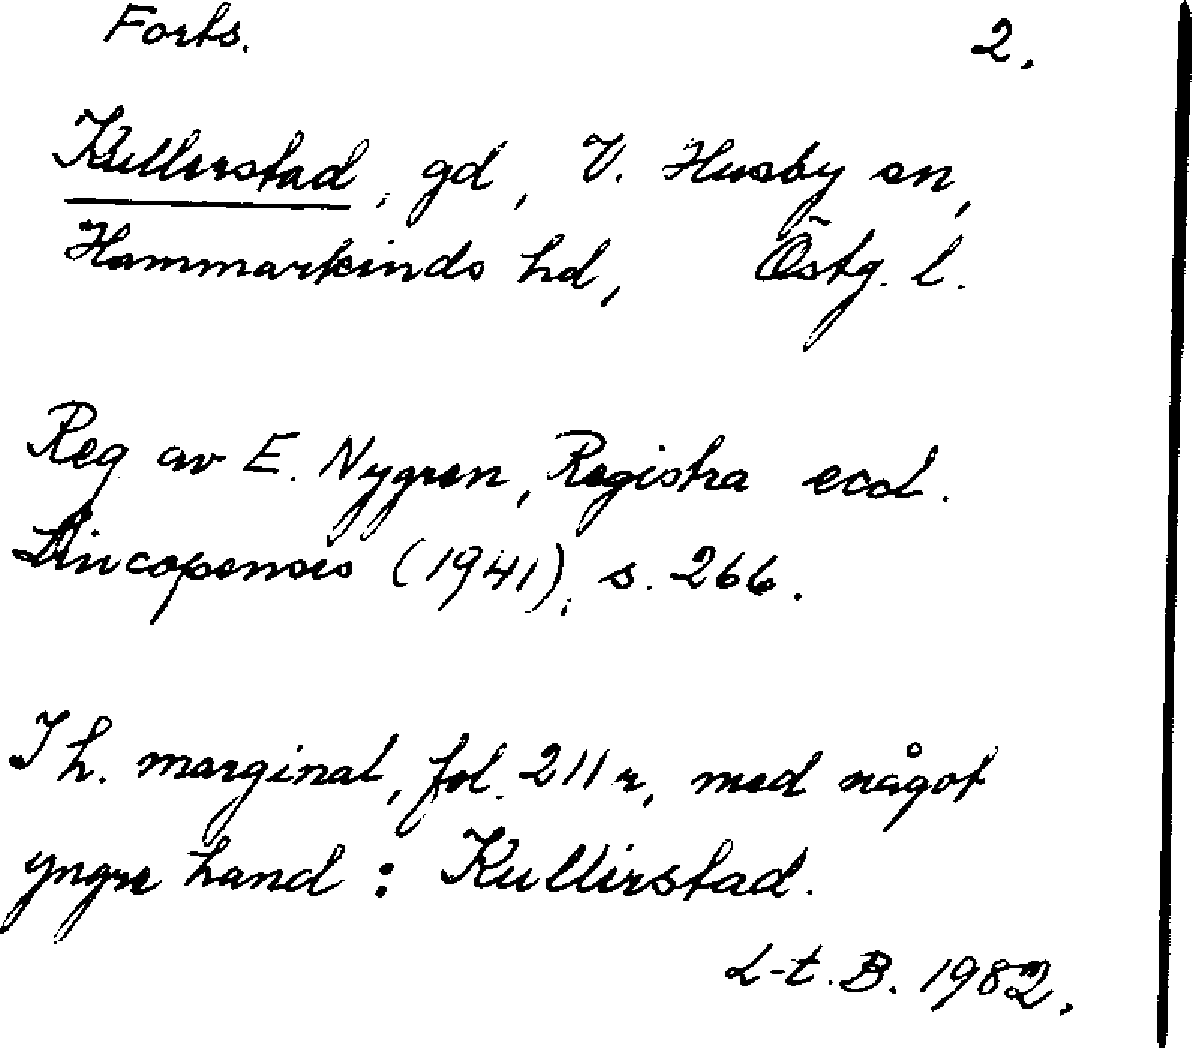 Forts. 2.
Kullerstad, gd, V. Husby sn,
Hammarkinds hd, Östg. l.
Reg av E. Nygren, Registra eccl.
Lincopensis (1941), s. 266.
I h. marginal, fol. 211 r, med något
yngre hand: Kullirstad.
L-t. B. 1982.